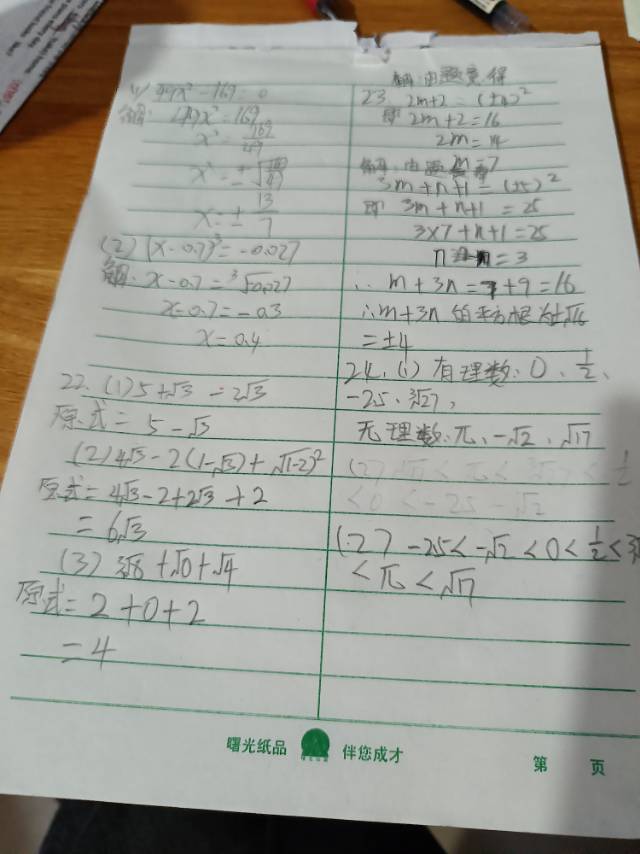 (1) 49x²-169=0
解: 49x²=169
x²=169/49
x=±√169/49
x=±13/7
(2) (x-0.7)³=-0.027
解: x-0.7=³√0.027
x-0.7=-0.3
x=0.4
22. (1) 5+√3-2√3
原式=5-√3
(2) 4√3-2(1-√3)+√(-2)²
原式=4√3-2+2√3+2
=6√3
(3) ³√8+√0+√4
原式=2+0+2
=4
解:由题意得
23. 2m+2=(±4)²
即 2m+2=16
2m=14
m=7
3m+n+1=(±5)²
即 3m+n+1=25
3×7+n+1=25
n=3
∴m+3n=7+9=16
∴m+3n的平方根为±√16
=±4
24. (1) 有理数: 0、1/2、
-2.5、³√27,
无理数: π、-√2、√17
(2) √17<π<³√27<1/2
<0<-2.5-√2
(2) -2.5<-√2<0<1/2<³√
<π<√17
曙光纸品 伴您成才 第 页